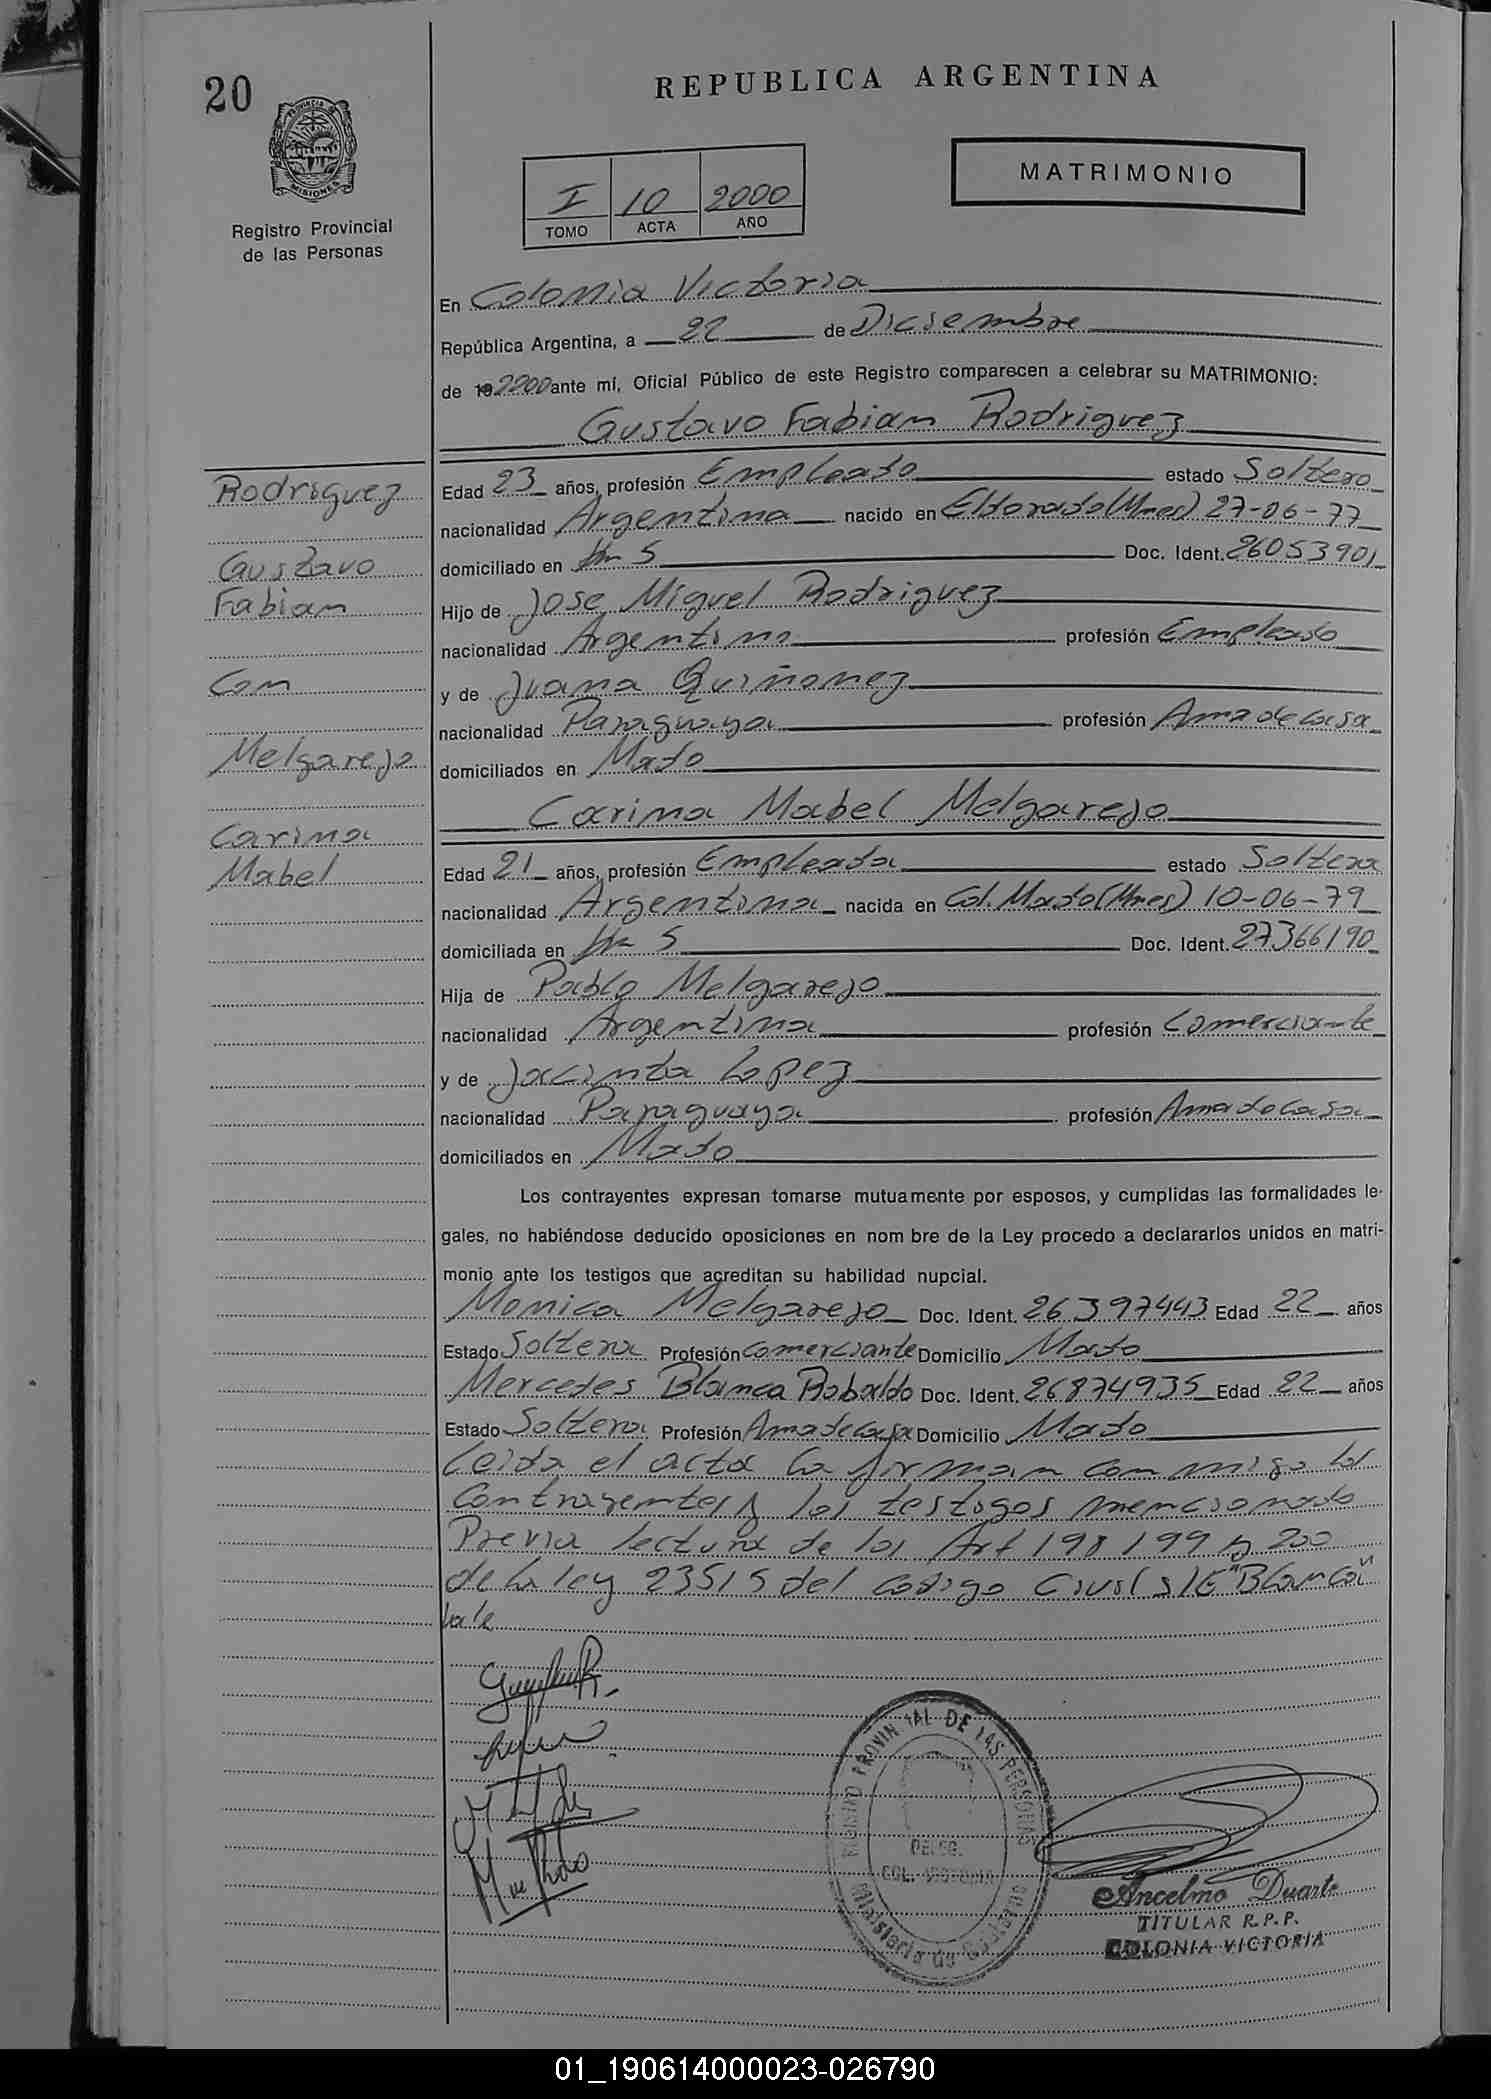 20
REPUBLICA ARGENTINA
PROVINCIA DE
MISIONES
Registro Provincial
de las Personas
MATRIMONIO
I 10 2000
TOMO ACTA AÑO
En Colonia Victoria
República Argentina, a 22 de Diciembre
de 19 2000 ante mí, Oficial Público de este Registro comparecen a celebrar su MATRIMONIO:
Gustavo Fabian Rodriguez
Rodriguez
Gustavo
Fabian
Con
Melgarejo
Carina
Mabel
Edad 23 años, profesión Empleado estado Soltero
nacionalidad Argentina nacido en Eldorado (Mnes) 27-06-77
domiciliado en Km 5 Doc. Ident. 26053901
Hijo de Jose Miguel Rodriguez
nacionalidad Argentino profesión Empleado
y de Juana Quiñonez
nacionalidad Paraguaya profesión Ama de casa
domiciliados en Mado
Carina Mabel Melgarejo
Edad 21 años, profesión Empleada estado Soltera
nacionalidad Argentina nacida en Col. Mado (Mnes) 10-06-79
domiciliada en Km 5 Doc. Ident. 27366190
Hija de Pablo Melgarejo
nacionalidad Argentina profesión Comerciante
y de Jacinta Lopez
nacionalidad Paraguaya profesión Ama de casa
domiciliados en Mado
Los contrayentes expresan tomarse mutuamente por esposos, y cumplidas las formalidades le-
gales, no habiéndose deducido oposiciones en nom bre de la Ley procedo a declararlos unidos en matri-
monio ante los testigos que acreditan su habilidad nupcial.
Monica Melgarejo Doc. Ident. 26397443 Edad 22 años
Estado Soltera Profesión comerciante Domicilio Mado
Mercedes Blanca Robaldo Doc. Ident. 26874935 Edad 22 años
Estado Soltera Profesión Ama de casa Domicilio Mado
Leida el acta la firman conmigo los
Contrayentes y los testigos mencionado
Previa lectura de los Art 198 199 y 200
de la ley 23515 del codigo Civil s/E "Blanca"
Vale
PROVINCIAL DE LAS PERSONAS
DELEG.
Ministerio de Gobierno
Ancelmo Duarte
TITULAR R.P.P.
COLONIA VICTORIA
01_190614000023-026790